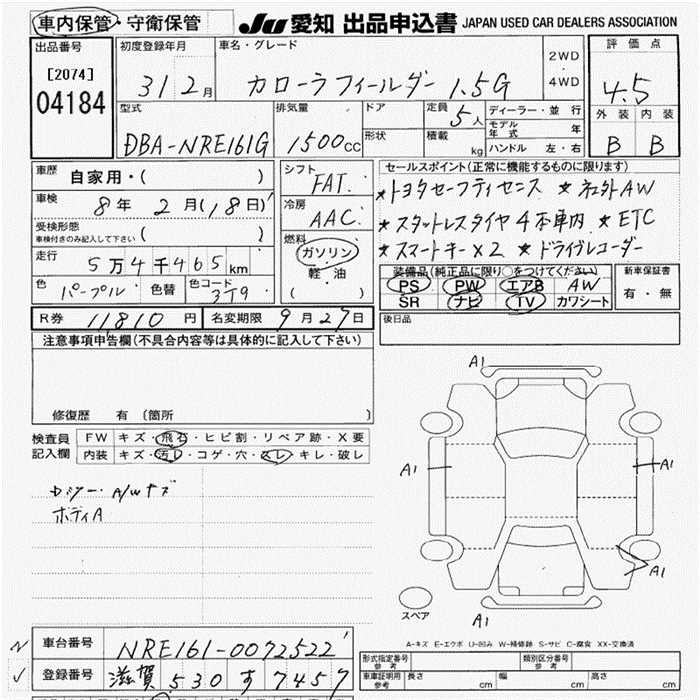 車内保管・守衛保管 JU 愛知 出品申込書 JAPAN USED CAR DEALERS ASSOCIATION
出品番号
[2074]
04184
初度登録年月 31 2月
車名・グレード カローラフィールダー 1.5G
2WD・4WD
評価点
4.5
外装 内装
B B
型式 DBA-NRE161G
排気量 1500CC
ドア
形状
定員 5人
積載 kg
ディーラー・並行
モデル年式 年
ハンドル 左・右
車歴 自家用・( )
車検 8年 2月(18日)
受検形態 ( )
車検付きのみ記入して下さい
走行 5万4千465km
色 パープル 色替 色コード 3T9
シフト FAT
冷房 AAC
燃料 ガソリン・軽・油 ( )
セールスポイント(正常に機能するものに限ります)
★トヨタセーフティセンス ★社外AW
★スタットレスタイヤ4本車内 ★ETC
★スマートキー×2 ★ドライブレコーダー
装備品(純正品に限り○をつけてください)
PS PW エアB AW
SR ナビ TV カワシート
新車保証書
有・無
R券 11810円 名変期限 9月27日
後日品
注意事項申告欄(不具合内容等は具体的に記入して下さい)
修復歴 有〔箇所 〕
検査員記入欄
FW キズ・飛石・ヒビ割・リペア跡・X要
内装 キズ・汚レ・コゲ・穴・スレ・キレ・破レ
A/Wキズ
ボディA
A1
A1
A1
A1
A1
スペア
A-キズ E-エクボ U-凹み W-補修跡 S-サビ C-腐食 XX-交換済
車台番号 NRE161-0072522
登録番号 滋賀 530 す 7457
形式指定番号 参考 類別区分番号 参考
車庫証明用 参考 長さ cm 幅 cm 高さ cm